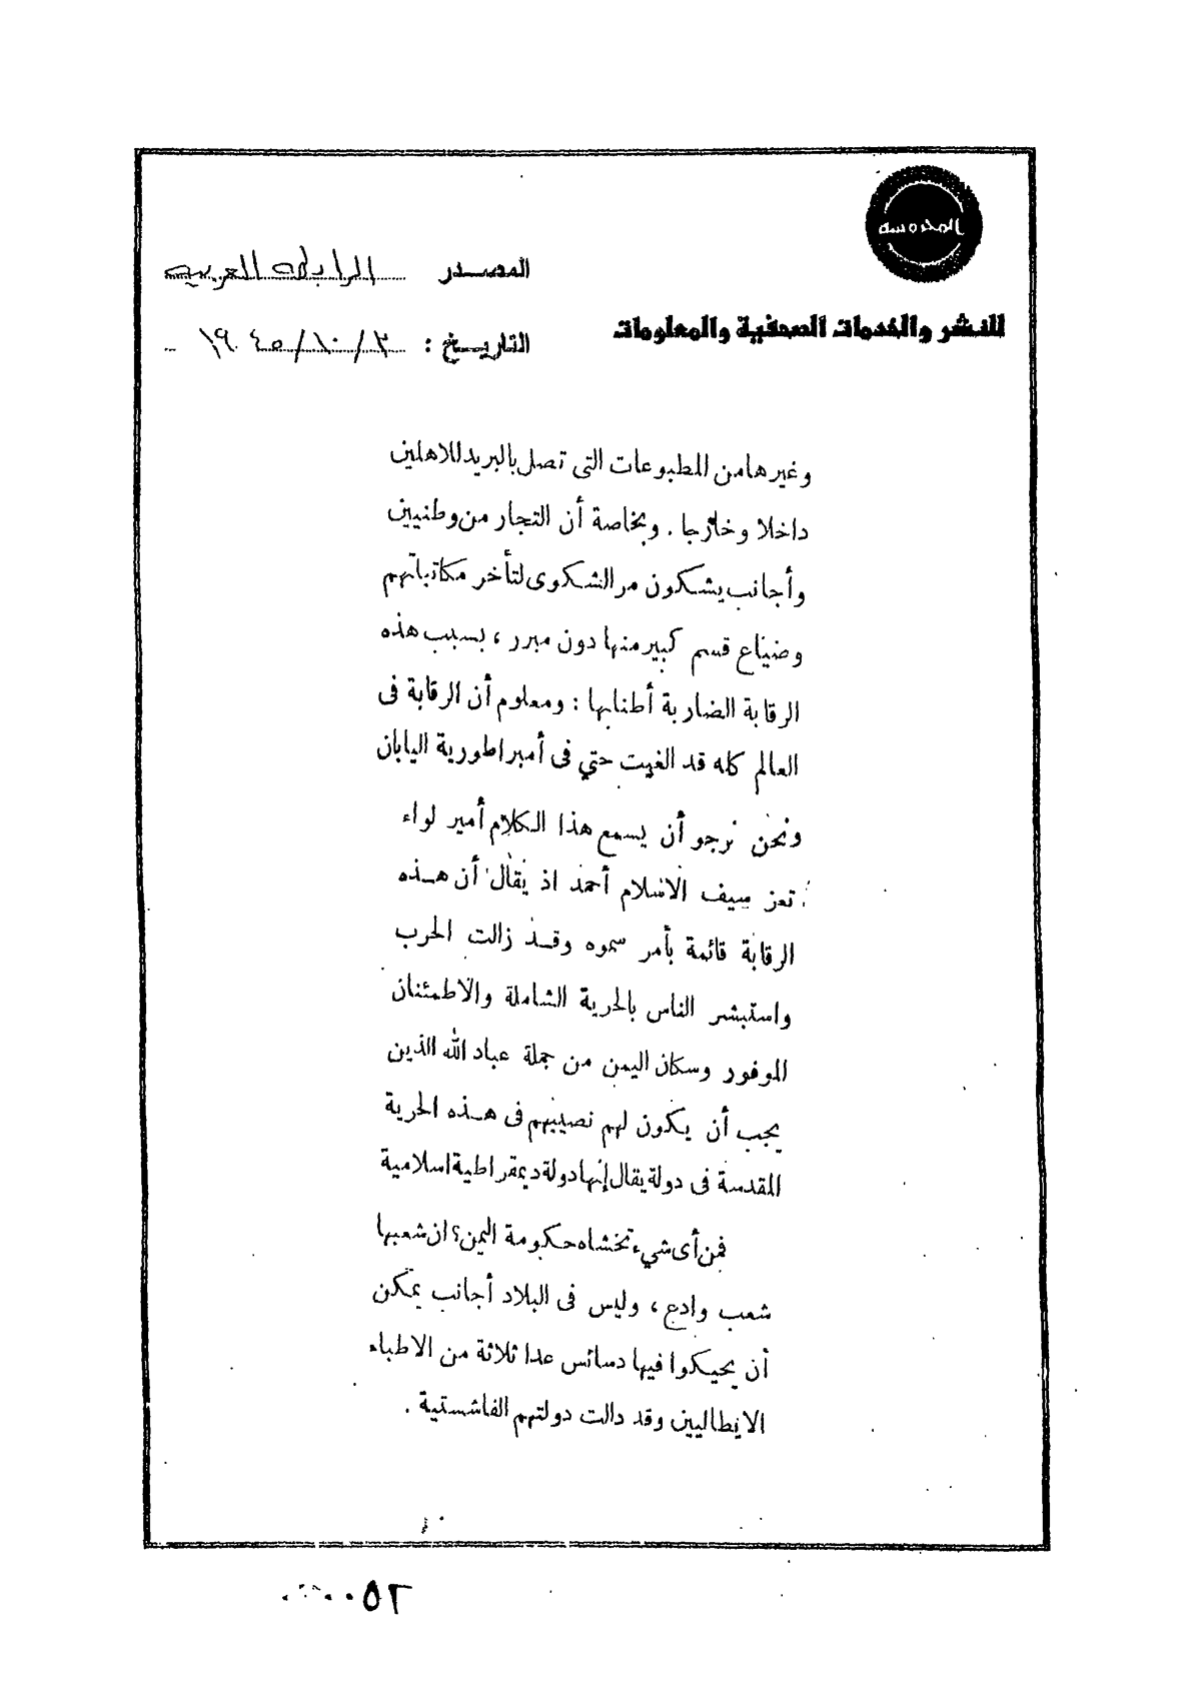 المحروسة
المصدر الرابطة العربية
للنشر والخدمات الصحفية والمعلومات
التاريخ : ٣/١٠/١٩٤٥
وغيرها من المطبوعات التى تصل بالبريد للاهلين
داخلا وخارجا . وبخاصة أن التجار من وطنيين
وأجانب يشكون مر الشكوى لتأخر مكاتباتهم
وضياع قسم كبير منها دون مبرر ، بسبب هذه
الرقابة الضاربة أطنابها : ومعلوم أن الرقابة فى
العالم كله قد الغيت حتي فى أمبراطورية اليابان
ونحن نرجو أن يسمع هذا الكلام أمير لواء
تعز سيف الاسلام أحمد اذ يقال أن هذه
الرقابة قائمة بأمر سموه وقد زالت الحرب
واستبشر الناس بالحرية الشاملة والاطمئنان
الموفور وسكان اليمن من جملة عباد الله الذين
يجب أن يكون لهم نصيبهم فى هذه الحرية
المقدسة فى دولة يقال إنها دولة ديمقراطية اسلامية
فمن أى شيء تخشاه حكومة اليمن ؟ ان شعبها
شعب وادع ، وليس فى البلاد أجانب يمكن
أن يحيكوا فيها دسائس عدا ثلاثة من الاطباء
الايطاليين وقد دالت دولتهم الفاشستية .
٠٠٥٢